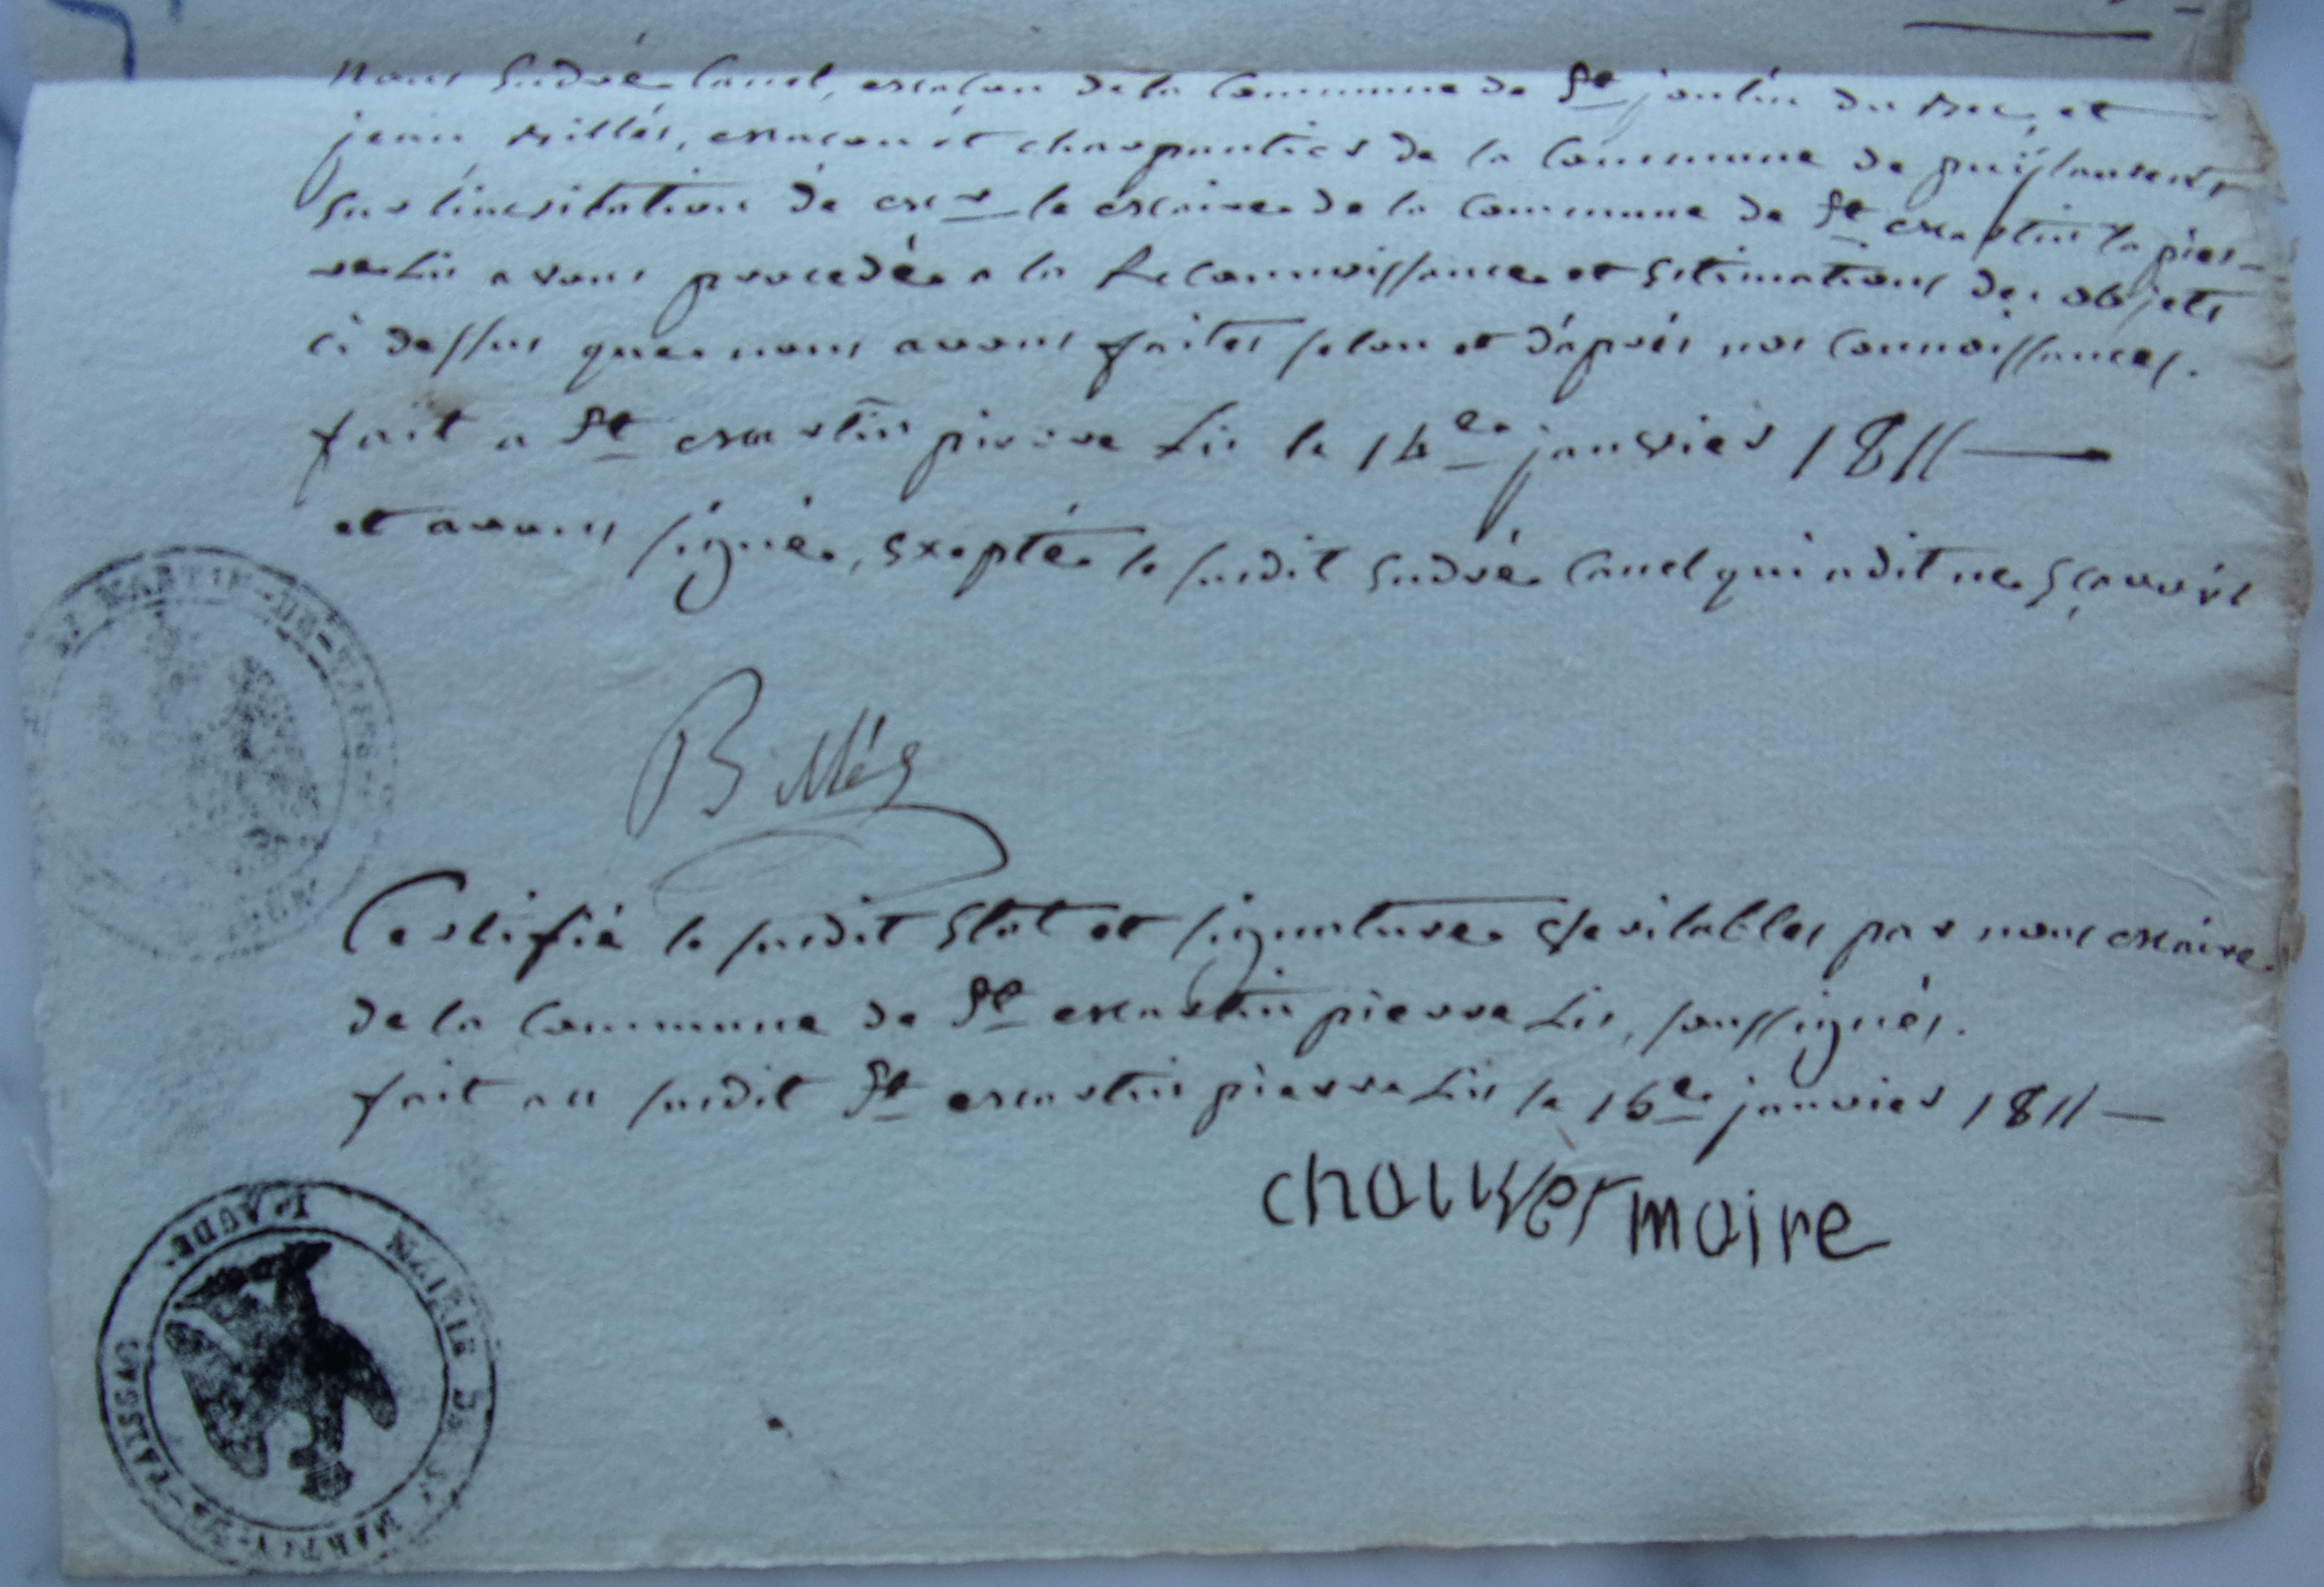 nous André Canel, maçon de la Commune de St joulin du Bec, et
jean Billés, maçon et charpentier de la Commune de puislaurens
sur linvitation de mr le maire de la Commune de St martin la pier-
re Lis avons procedé a la Reconnoissance et Estimations des objets
ci dessus que nous avons faites selon et d'aprés nos Connoissances.
fait a St martin pierre Lis le 14e janvier 1811
et avons signé, Exepté le susdit André Canel qui a dit ne sçavoir
St MARTIN-DE-TAISSAC
Billés
Certifié le susdit Etat et signature Veritables par nous maire
de la Commune de St martin pierre Lis, soussignés.
fait au susdit St martin pierre Lis le 16e janvier 1811
chauvet maire
MAIRIE De St MARTIN-DE-TAISSAC L'AUDE